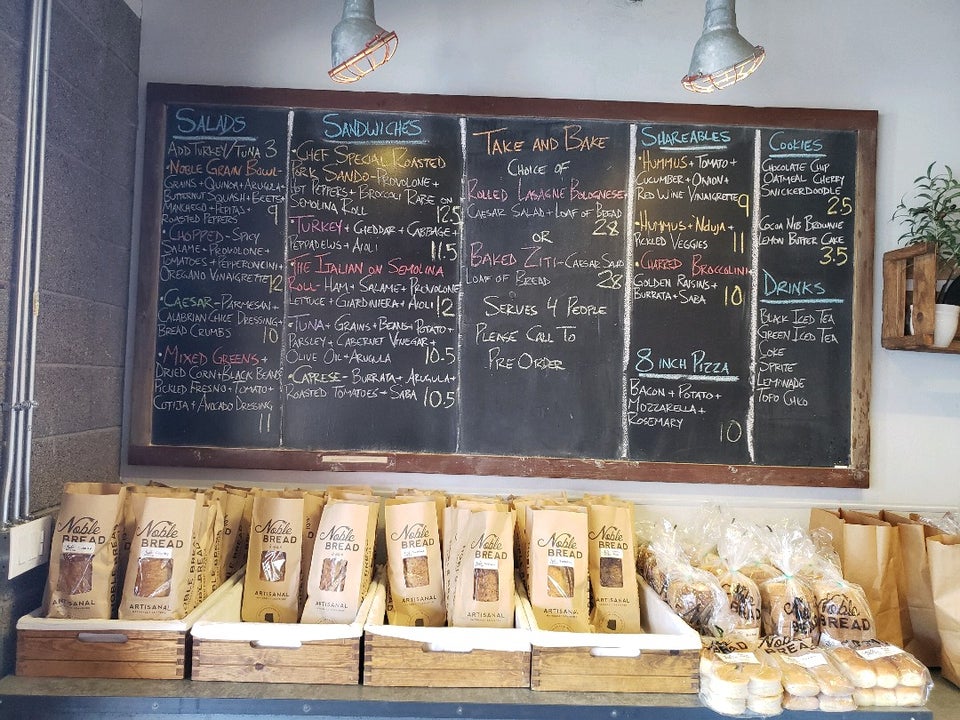 SALADS
ADD TURKEY/TUNA 3
•NOBLE GRAIN BOWL-
GRAINS+QUINOA+ARUGULA+
BUTTERNUT SQUASH+BEETS+
MANCHEGO+PEPITAS+
ROASTED PEPPERS 9
•CHOPPED-SPICY
SALAME+PROVOLONE+
TOMATOES+PEPPERONCINI+
OREGANO VINAIGRETTE 12
•CAESAR-PARMESAN+
CALABRIAN CHILE DRESSING+
BREAD CRUMBS 10
•MIXED GREENS+
DRIED CORN+BLACK BEANS
PICKLED FRESNO+TOMATO+
COTIJA+AVOCADO DRESSING
11
SANDWICHES
•CHEF SPECIAL ROASTED
PORK SANDO-PROVOLONE+
HOT PEPPERS+BROCCOLI RABE ON
SEMOLINA ROLL 12.5
•TURKEY+CHEDDAR+CABBAGE+
PEPPADEWS+AIOLI 11.5
•THE ITALIAN ON SEMOLINA
ROLL-HAM+SALAME+PROVOLONE
LETTUCE+GIARDINIERA+AIOLI 12
•TUNA+GRAINS+BEANS+POTATO+
PARSLEY+CABERNET VINEGAR+
OLIVE OIL+ARUGULA 10.5
•CAPRESE-BURRATA+ARUGULA+
ROASTED TOMATOES+SABA 10.5
TAKE AND BAKE
CHOICE OF
ROLLED LASAGNE BOLOGNESE+
CAESAR SALAD+LOAF OF BREAD
28
OR
BAKED ZITI-CAESAR SALAD
LOAF OF BREAD 28
SERVES 4 PEOPLE
PLEASE CALL TO
PRE ORDER
SHAREABLES
•HUMMUS+TOMATO+
CUCUMBER+ONION+
RED WINE VINAIGRETTE 9
•HUMMUS+NDUJA+
PICKLED VEGGIES 11
•CHARRED BROCCOLINI+
GOLDEN RAISINS+
BURRATA+SABA 10
8 INCH PIZZA
BACON+POTATO+
MOZZARELLA+
ROSEMARY 10
COOKIES
CHOCOLATE CHIP
OATMEAL CHERRY
SNICKERDOODLE
2.5
COCOA NIB BROWNIE
LEMON BUTTER CAKE
3.5
DRINKS
BLACK ICED TEA
GREEN ICED TEA
COKE
SPRITE
LEMONADE
TOPO CHICO
Noble
BREAD
ARTISANAL
Noble
BREAD
ARTISANAL
Noble
BREAD
ARTISANAL
Noble
BREAD
ARTISANAL
Noble
BREAD
ARTISANAL
Noble
BREAD
ARTISANAL
Noble
BREAD
ARTISANAL
Noble
BREAD
ARTISANAL
Noble
BREAD